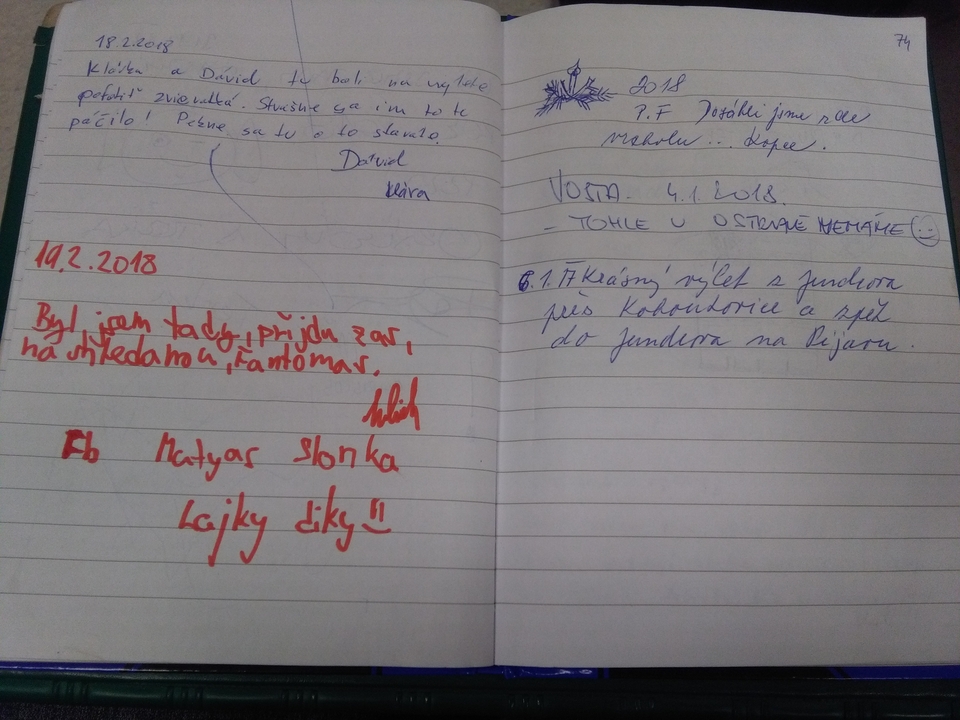 18.2.2018
Klárka a Dávid tu boli na výlete
pofotiť zvieratká. Strašne sa im to tu
páčilo! Pekne sa tu o to starajú.
Dávid
Klára
19.2.2018
Byl jsem tady, přijdu zas,
na shledanou, Fantomas.
Fb Matyas Slonka
Lajky díky
74
2018
P.F Dosáhli jsme zde
vrcholu... Kopce.
VOSTA. 4.1.2018.
- TOHLE U OSTRAVĚ NEMÁME
6.1. Krásný výlet z Jundrova
přes Kohoutovice a zpět
do Jundrova na Pijavu.